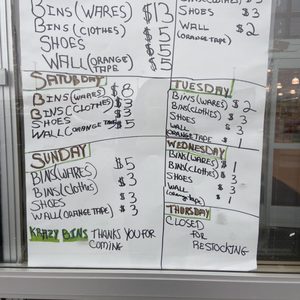 BINS (WARES) $13
BINS (CLOTHES) $5
SHOES $5
WALL (ORANGE TAPE $5
SATURDAY
BINS (WARES) $8
BINS (CLOTHES) $3
SHOES $3
WALL (ORANGE TAPE $5
SUNDAY
BINS (WARES) $5
BINS (CLOTHES) $3
SHOES $3
WALL (ORANGE TAPE) $3
KRAZY BINS THANKS YOU FOR
COMING
SHOES $3
WALL $2
(ORANGE TAPE)
TUESDAY
BINS (WARES) $2
BINS (CLOTHES) $3
SHOES $3
WALL
(ORANGE TAPE) $1
WEDNESDAY
BINS (WARES) $1
BINS (CLOTHES) $3
SHOES $3
WALL
(ORANGE TAPE) $1
THURSDAY
CLOSED
FOR
RESTOCKING